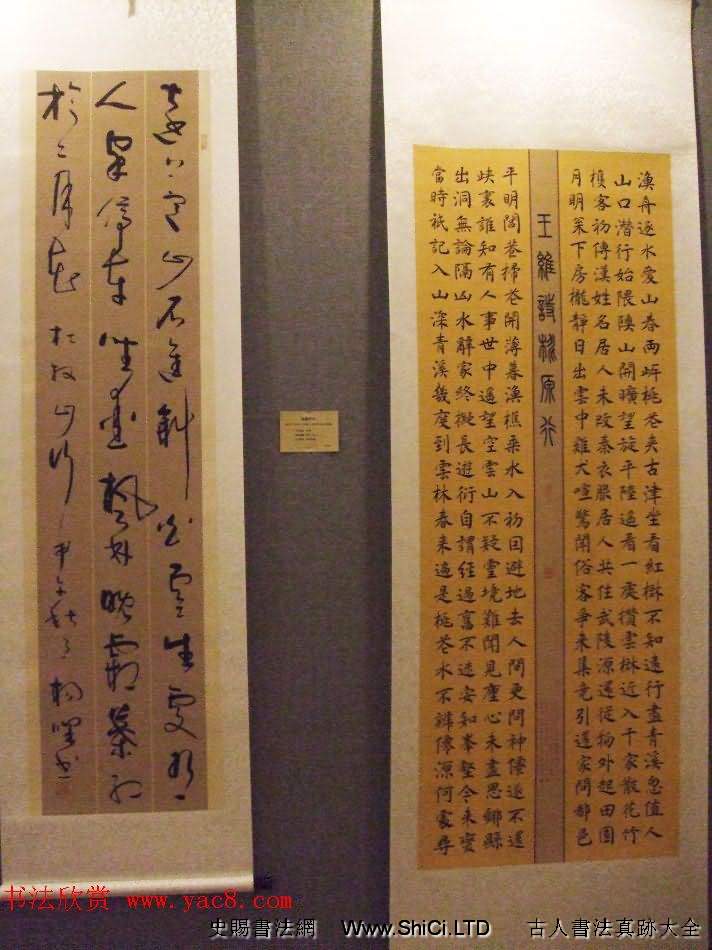 遠上寒山石徑斜白雲生處有
人家停車坐愛楓林晚霜葉紅
於二月花 杜牧山行
漁舟逐水愛山春兩岍桃花夾古津坐看紅樹不知遠行盡青溪忽值人
山口潛行始隈隩山開曠望旋平陸遥看一處攢雲樹近入千家散花竹
樵客初傳漢姓名居人未改秦衣服居人共住武陵源還從物外起田園
月明松下房櫳靜日出雲中雞犬喧驚聞俗客爭來集竞引還家問都邑
王維詩桃原行
平明閭巷掃花開薄暮漁樵乘水入初因避地去人間更問神僊遂不還
峽裏誰知有人事世中遥望空雲山不疑靈境難聞見塵心未盡思鄉縣
出洞無論隔山水辭家終擬長遊衍自謂經過舊不迷安知峯壑今來變
當時祇記入山深青溪幾度到雲林春來遍是桃花水不辨僊源何處尋
书法欣赏 www.yac8.com
史賜書法網 Www.ShiCi.LTD 古人書法真跡大全